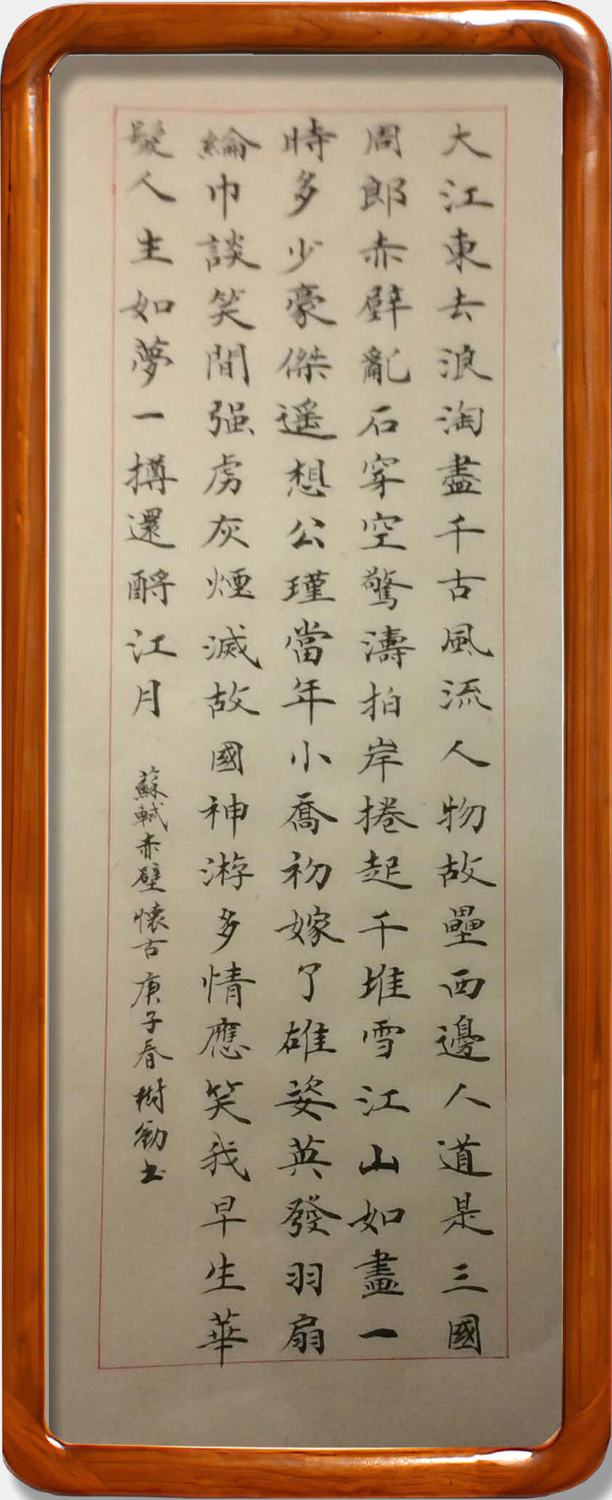 大江東去浪淘盡千古風流人物故壘西邊人道是三國
周郎赤壁亂石穿空驚濤拍岸捲起千堆雪江山如盡一
時多少豪傑遥想公瑾當年小喬初嫁了雄姿英發羽扇
綸巾談笑間强虏灰煙滅故國神游多情應笑我早生華
髮人生如夢一撙還酹江月
蘇軾赤壁懷古庚子春樹書